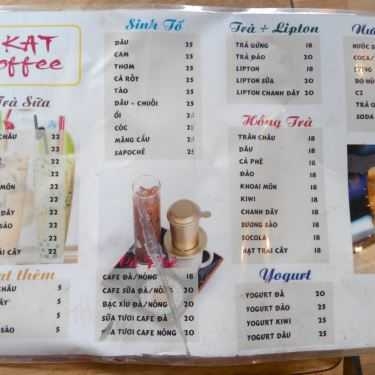 KAT
offee
Trà Sữa
CHÂU 22
22
22
22
MÔN 22
22
DÂY 22
SÁO 22
22
ÁI CÂY 22
thêm
CHÂU 5
CÂY 5
5
SÁO 5
Sinh Tố
DÂU 25
CAM 25
THƠM 25
CÀ RỐT 25
TÁO 25
DÂU - CHUỐI 25
ỔI 25
CÓC 25
MÃNG CẦU 25
SAPOCHÊ 25
CAFE ĐÁ/NÓNG 18
CAFE SỮA ĐÁ/NÓNG 20
BẠC XỈU ĐÁ/NÓNG 20
SỮA TƯƠI CAFE ĐÁ 20
SỮA TƯƠI CAFE NÓNG 20
Trà ÷ Lipton
TRÀ GỪNG 18
TRÀ ĐÀO 20
LIPTON 18
LIPTON SỮA 20
LIPTON CHANH DÂY 20
Hồng Trà
TRÂN CHÂU 18
DÂU 18
CÀ PHÊ 18
ĐÀO 18
KHOAI MÔN 18
KIWI 18
CHANH DÂY 18
SƯƠNG SÁO 18
SOCOLA 18
HẠT TRÁI CÂY 18
Yogurt
YOGURT ĐÁ 20
YOGURT ĐÀO 20
YOGURT KIWI 25
YOGURT DÂU 25
NƯỚC
COCA/
C2
TRÀ
SODA